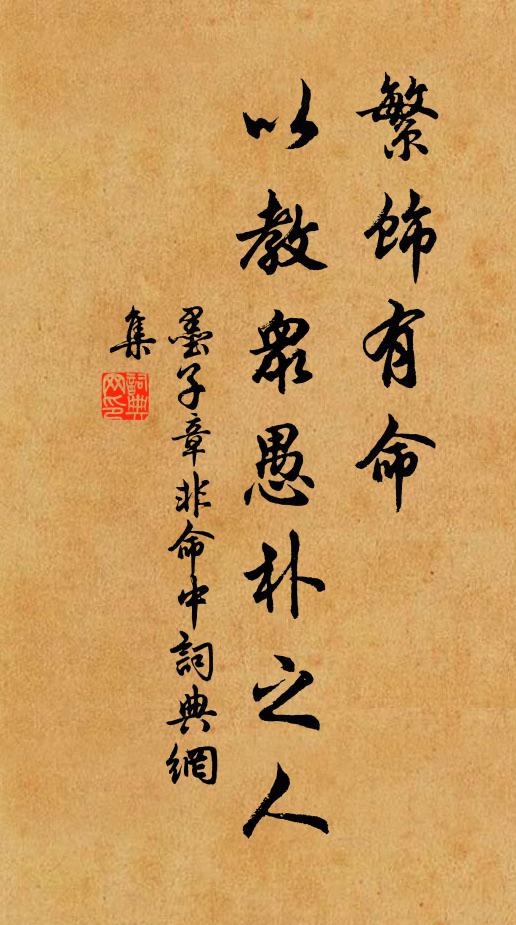 繁飾有命
以教眾愚朴之人
墨子章非命中詞典網
集
詞典
网印